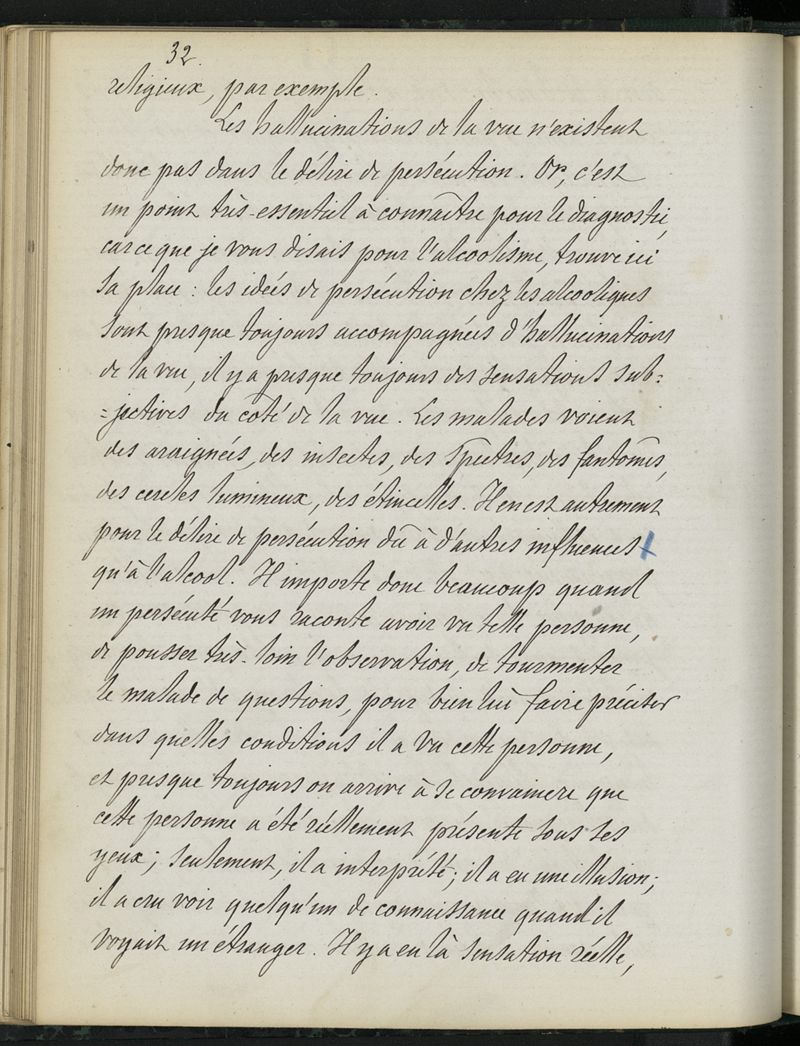 32.
religieux, par exemple.
Les hallucinations de la vue n'existent
donc pas dans le délire de persécution. Or, c'est
un point très-essentiel à connaître pour le diagnostic,
car ce que je vous disais pour l'alcoolisme, trouve ici
sa place : les idées de persécution chez les alcooliques
sont presque toujours accompagnées d'hallucinations
de la vue, il y a presque toujours des sensations sub=
=jectives du côté de la vue. Les malades voient
des araignées, des insectes, des spectres, des fantômes,
des cercles lumineux, des étincelles. Il en est autrement
pour le délire de persécution dû à d'autres influences
qu'à l'alcool. Il importe donc beaucoup quand
un persécuté vous raconte avoir vu telle personne,
de pousser très-loin l'observation, de tourmenter
le malade de questions, pour bien lui faire préciser
dans quelles conditions il a vu cette personne,
et presque toujours on arrive à se convaincre que
cette personne a été réellement présente sous ses
yeux; seulement, il a interprété; il a eu une illusion;
il a cru voir quelqu'un de connaissance quand il
voyait un étranger. Il y a eu là sensation réelle,